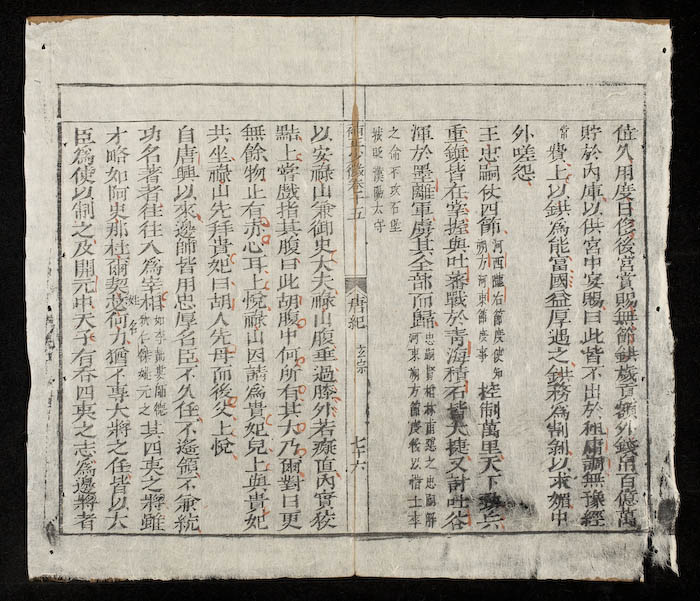 位久用度日侈後宮賞賜無節鉷歲貢額外錢帛百億萬
貯於內庫以供宮中宴賜曰此皆不出於租庸調無豫經
常費上以鉷為能富國益厚遇之鉷務為割剥以求媚中
外嗟怨
王忠嗣仗四節河西隴右節度使知朔方河東節度事控制萬里天下勁兵
重鎮皆在掌握與吐蕃戰於青海積石皆大捷又討吐谷
渾於墨離軍虜其全部而歸忠嗣之忠嗣辭河東朔方節度後以
之不攻石堡被貶漢陽太守
卷二十五 唐紀 玄宗 七十六
以安祿山兼御史大夫祿山腹垂過膝外若癡直內實狡
黠上嘗戲指其腹曰此胡腹中何所有其大乃爾對曰更
無餘物止有赤心耳上悅祿山因請為貴妃兒上與貴妃
共坐祿山先拜貴妃曰胡人先母而後父上悅
自唐興以來邊帥皆用忠厚名臣不久任不遙領不兼統
功名著者往往入為宰相姚元之其四夷之將雖
才略如阿史那杜爾契苾何力猶不專大將之任皆以大
臣為使以制之及開元中天子有吞四夷之志為邊將者